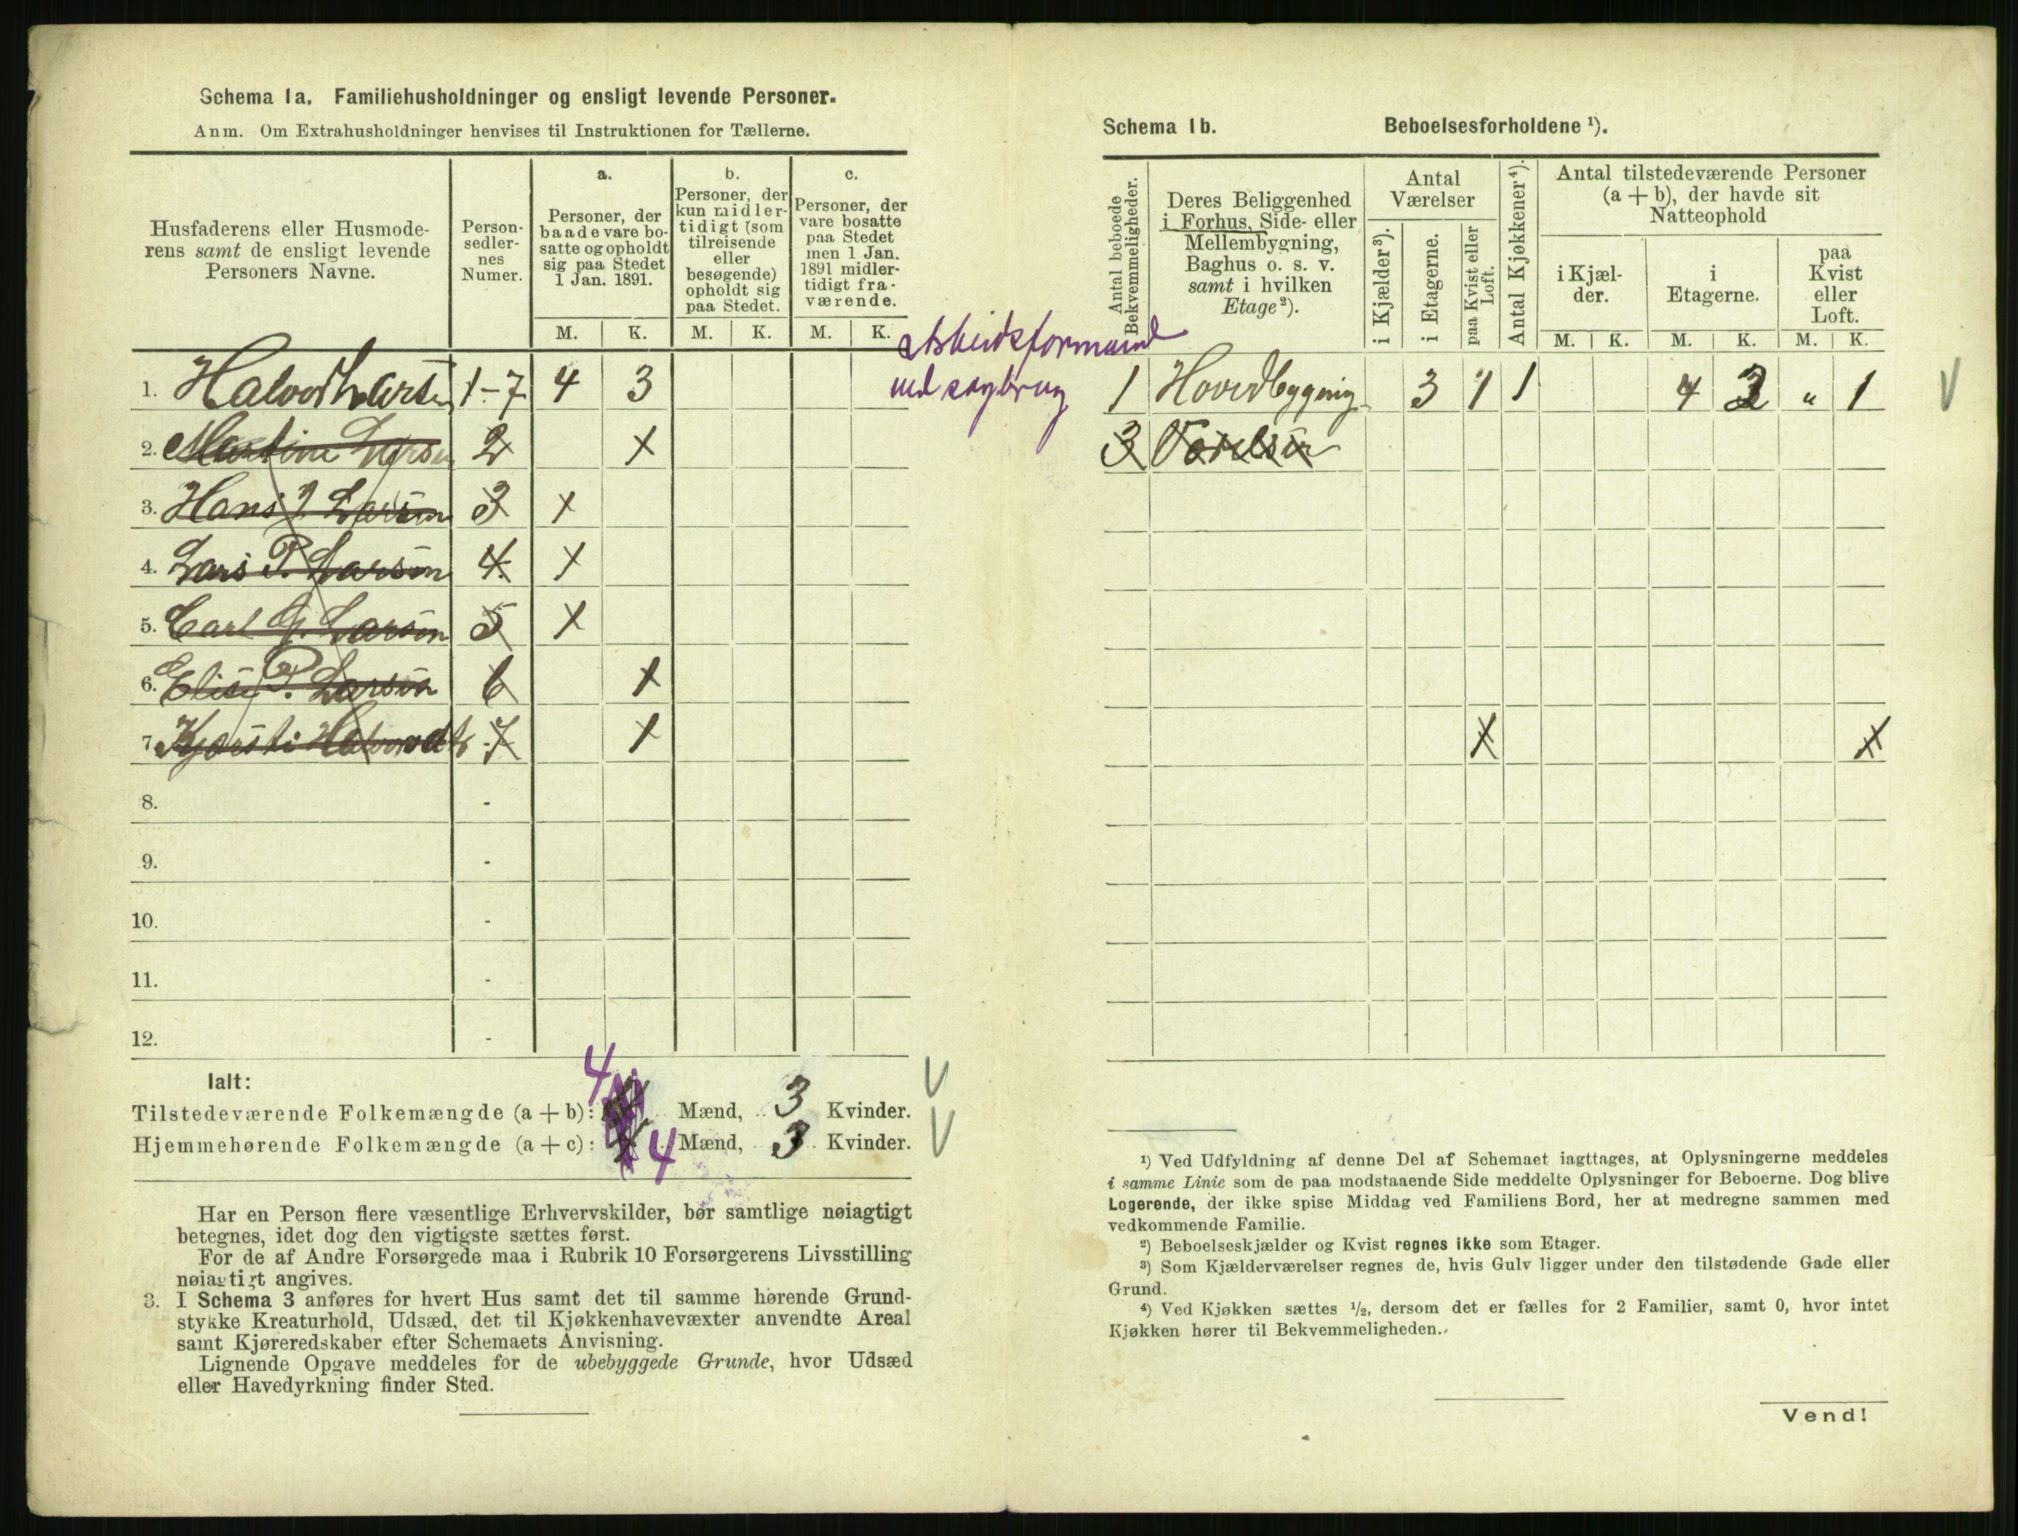 Schema 1a. Familiehusholdninger og ensligt levende Personer.
Anm. Om Extrahusholdninger henvises til Instruktionen for Tællerne.
Husfaderens eller Husmode-
rens samt de ensligt levende
Personers Navne.
Person-
sedler-
nes
Numer.
a.
Personer, der
baade vare bo-
satte og opholdt
sig paa Stedet
1 Jan. 1891.
b.
Personer, der
kun midler-
tidigt (som
tilreisende
eller
besøgende)
opholdt sig
paa Stedet.
c.
Personer, der
vare bosatte
paa Stedet
men 1 Jan.
1891 midler-
tidigt fra-
værende.
M. K. M. K. M. K.
1. Halvord Larsen 1-7 4 3
2. Martine Larsen 2 x
3. Hans J. Larsen 3 x
4. Lars P. Larsen 4. x
5. Carl G. Larsen 5 x
6. Elise P. Larsen 6 x
7. Kjærsti Halvordt 7 x
8. -
9. -
10. -
11. -
12. -
Ialt:
4
Tilstedeværende Folkemængde (a + b): Mænd, 3 Kvinder. V
Hjemmehørende Folkemængde (a + c): 4 Mænd, 3 Kvinder. V
Har en Person flere væsentlige Erhvervskilder, bør samtlige nøiagtigt
betegnes, idet dog den vigtigste sættes først.
For de af Andre Forsørgede maa i Rubrik 10 Forsørgerens Livsstilling
nøiagtigt angives.
3. I Schema 3 anføres for hvert Hus samt det til samme hørende Grund-
stykke Kreaturhold, Udsæd, det til Kjøkkenhavevæxter anvendte Areal
samt Kjøreredskaber efter Schemaets Anvisning.
Lignende Opgave meddeles for de ubebyggede Grunde, hvor Udsæd
eller Havedyrkning finder Sted.
Arbeidsformand
ved sagbrug
Schema 1b. Beboelsesforholdene ¹).
Antal beboede
Bekvemmeligheder.
Deres Beliggenhed
i Forhus, Side- eller
Mellembygning,
Baghus o. s. v.
samt i hvilken
Etage²).
Antal
Værelser
i Kjælder³).
i Etagerne.
paa Kvist eller
Loft.
Antal Kjøkkener⁴).
Antal tilstedeværende Personer
(a + b), der havde sit
Natteophold
i Kjæl-
der.
i
Etagerne.
paa
Kvist
eller
Loft.
M. K. M. K. M. K.
1 Hovedbygning 3 1 1 4 2 „ 1 V
3 Værelser
¹) Ved Udfyldning af denne Del af Schemaet iagttages, at Oplysningerne meddeles
i samme Linie som de paa modstaaende Side meddelte Oplysninger for Beboerne. Dog blive
Logerende, der ikke spise Middag ved Familiens Bord, her at medregne sammen med
vedkommende Familie.
²) Beboelseskjælder og Kvist regnes ikke som Etager.
³) Som Kjælderværelser regnes de, hvis Gulv ligger under den tilstødende Gade eller
Grund.
⁴) Ved Kjøkken sættes ½, dersom det er fælles for 2 Familier, samt 0, hvor intet
Kjøkken hører til Bekvemmeligheden.
Vend!